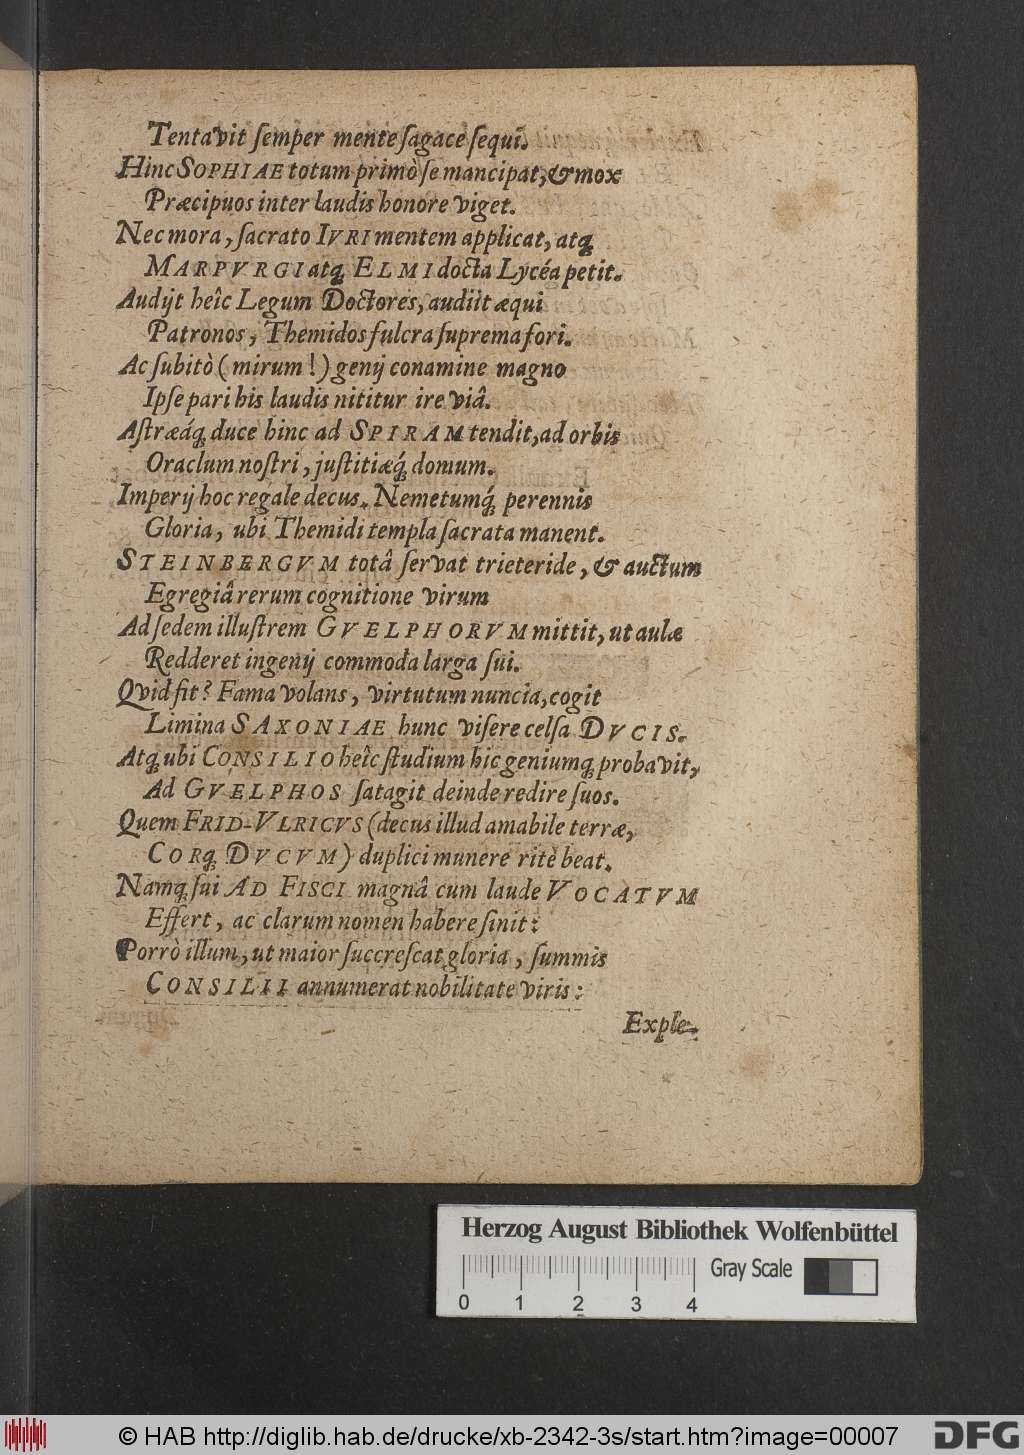 Tentavit ſemper mente ſagace ſequi.
Hinc SOPHIAE totum primò ſe mancipat, & mox
Præcipuos inter laudis honore viget.
Nec mora, ſacrato IVRI mentem applicat, atq́
MARPVRGI atq́ ELMI docta Lycéa petit.
Audijt heîc Legum Doctores, audiit æqui
Patronos, Themidos fulcra ſuprema fori.
Ac ſubitò (mirum!) genij conamine magno
Ipſe pari his laudis nititur ire viâ.
Aſtræáq́ duce hinc ad SPIRAM tendit, ad orbis
Oraclum noſtri, juſtitiæq́ domum.
Imperij hoc regale decus. Nemetumq́ perennis
Gloria, ubi Themidi templa ſacrata manent.
STEINBERGVM totâ ſervat trieteride, & auctum
Egregiâ rerum cognitione virum
Ad ſedem illuſtrem GVELPHORVM mittit, ut aulæ
Redderet ingenij commoda larga ſui.
Qvid fit? Fama volans, virtutum nuncia, cogit
Limina SAXONIAE hunc viſere celſa DVCIS.
Atq́ ubi CONSILIO heîc ſtudium hic geniumq́ probavit,
Ad GVELPHOS ſatagit deinde redire ſuos.
Quem FRID-VLRICVS (decus illud amabile terræ,
CORq́ DVCVM) duplici munere ritè beat.
Namq́ ſui AD FISCI magnâ cum laude VOCATVM
Effert, ac clarum nomen habere ſinit:
Porrò illum, ut maior ſuccreſcat gloria, ſummis
CONSILII annumerat nobilitate viris:
Exple-
Herzog August Bibliothek Wolfenbüttel
Gray Scale
0 1 2 3 4
© HAB http://diglib.hab.de/drucke/xb-2342-3s/start.htm?image=00007
DFG